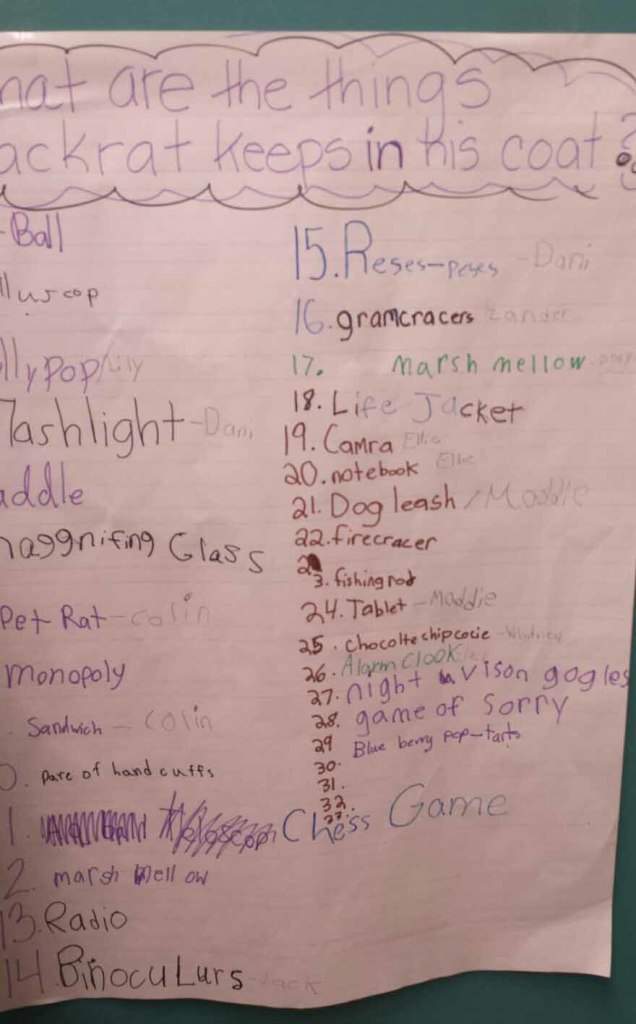 hat are the things
ackrat keeps in his coat?
-Ball
lluscop
llypop/Lily
lashlight -Dani
addle
naggnifing Glass
Pet Rat-colin
monopoly
Sandwich - Colin
0. pare of hand cuffs
1. Chess Game
2. marsh mellow
13. Radio
14. BinocuLurs -Jack
15. Reses-peses -Dani
16. gramcracers Lander
17. marsh mellow
18. Life Jacket
19. Camra Ellie
20. notebook Ellie
21. Dog leash /Maddie
22. firecracer
23. fishing rod
24. Tablet -Maddie
25. chocoltechipcocie -Whitney
26. Alarm Clook
27. night vison gogles
28. game of Sorry
29 Blue berry pop-tarts
30.
31.
32.
33.